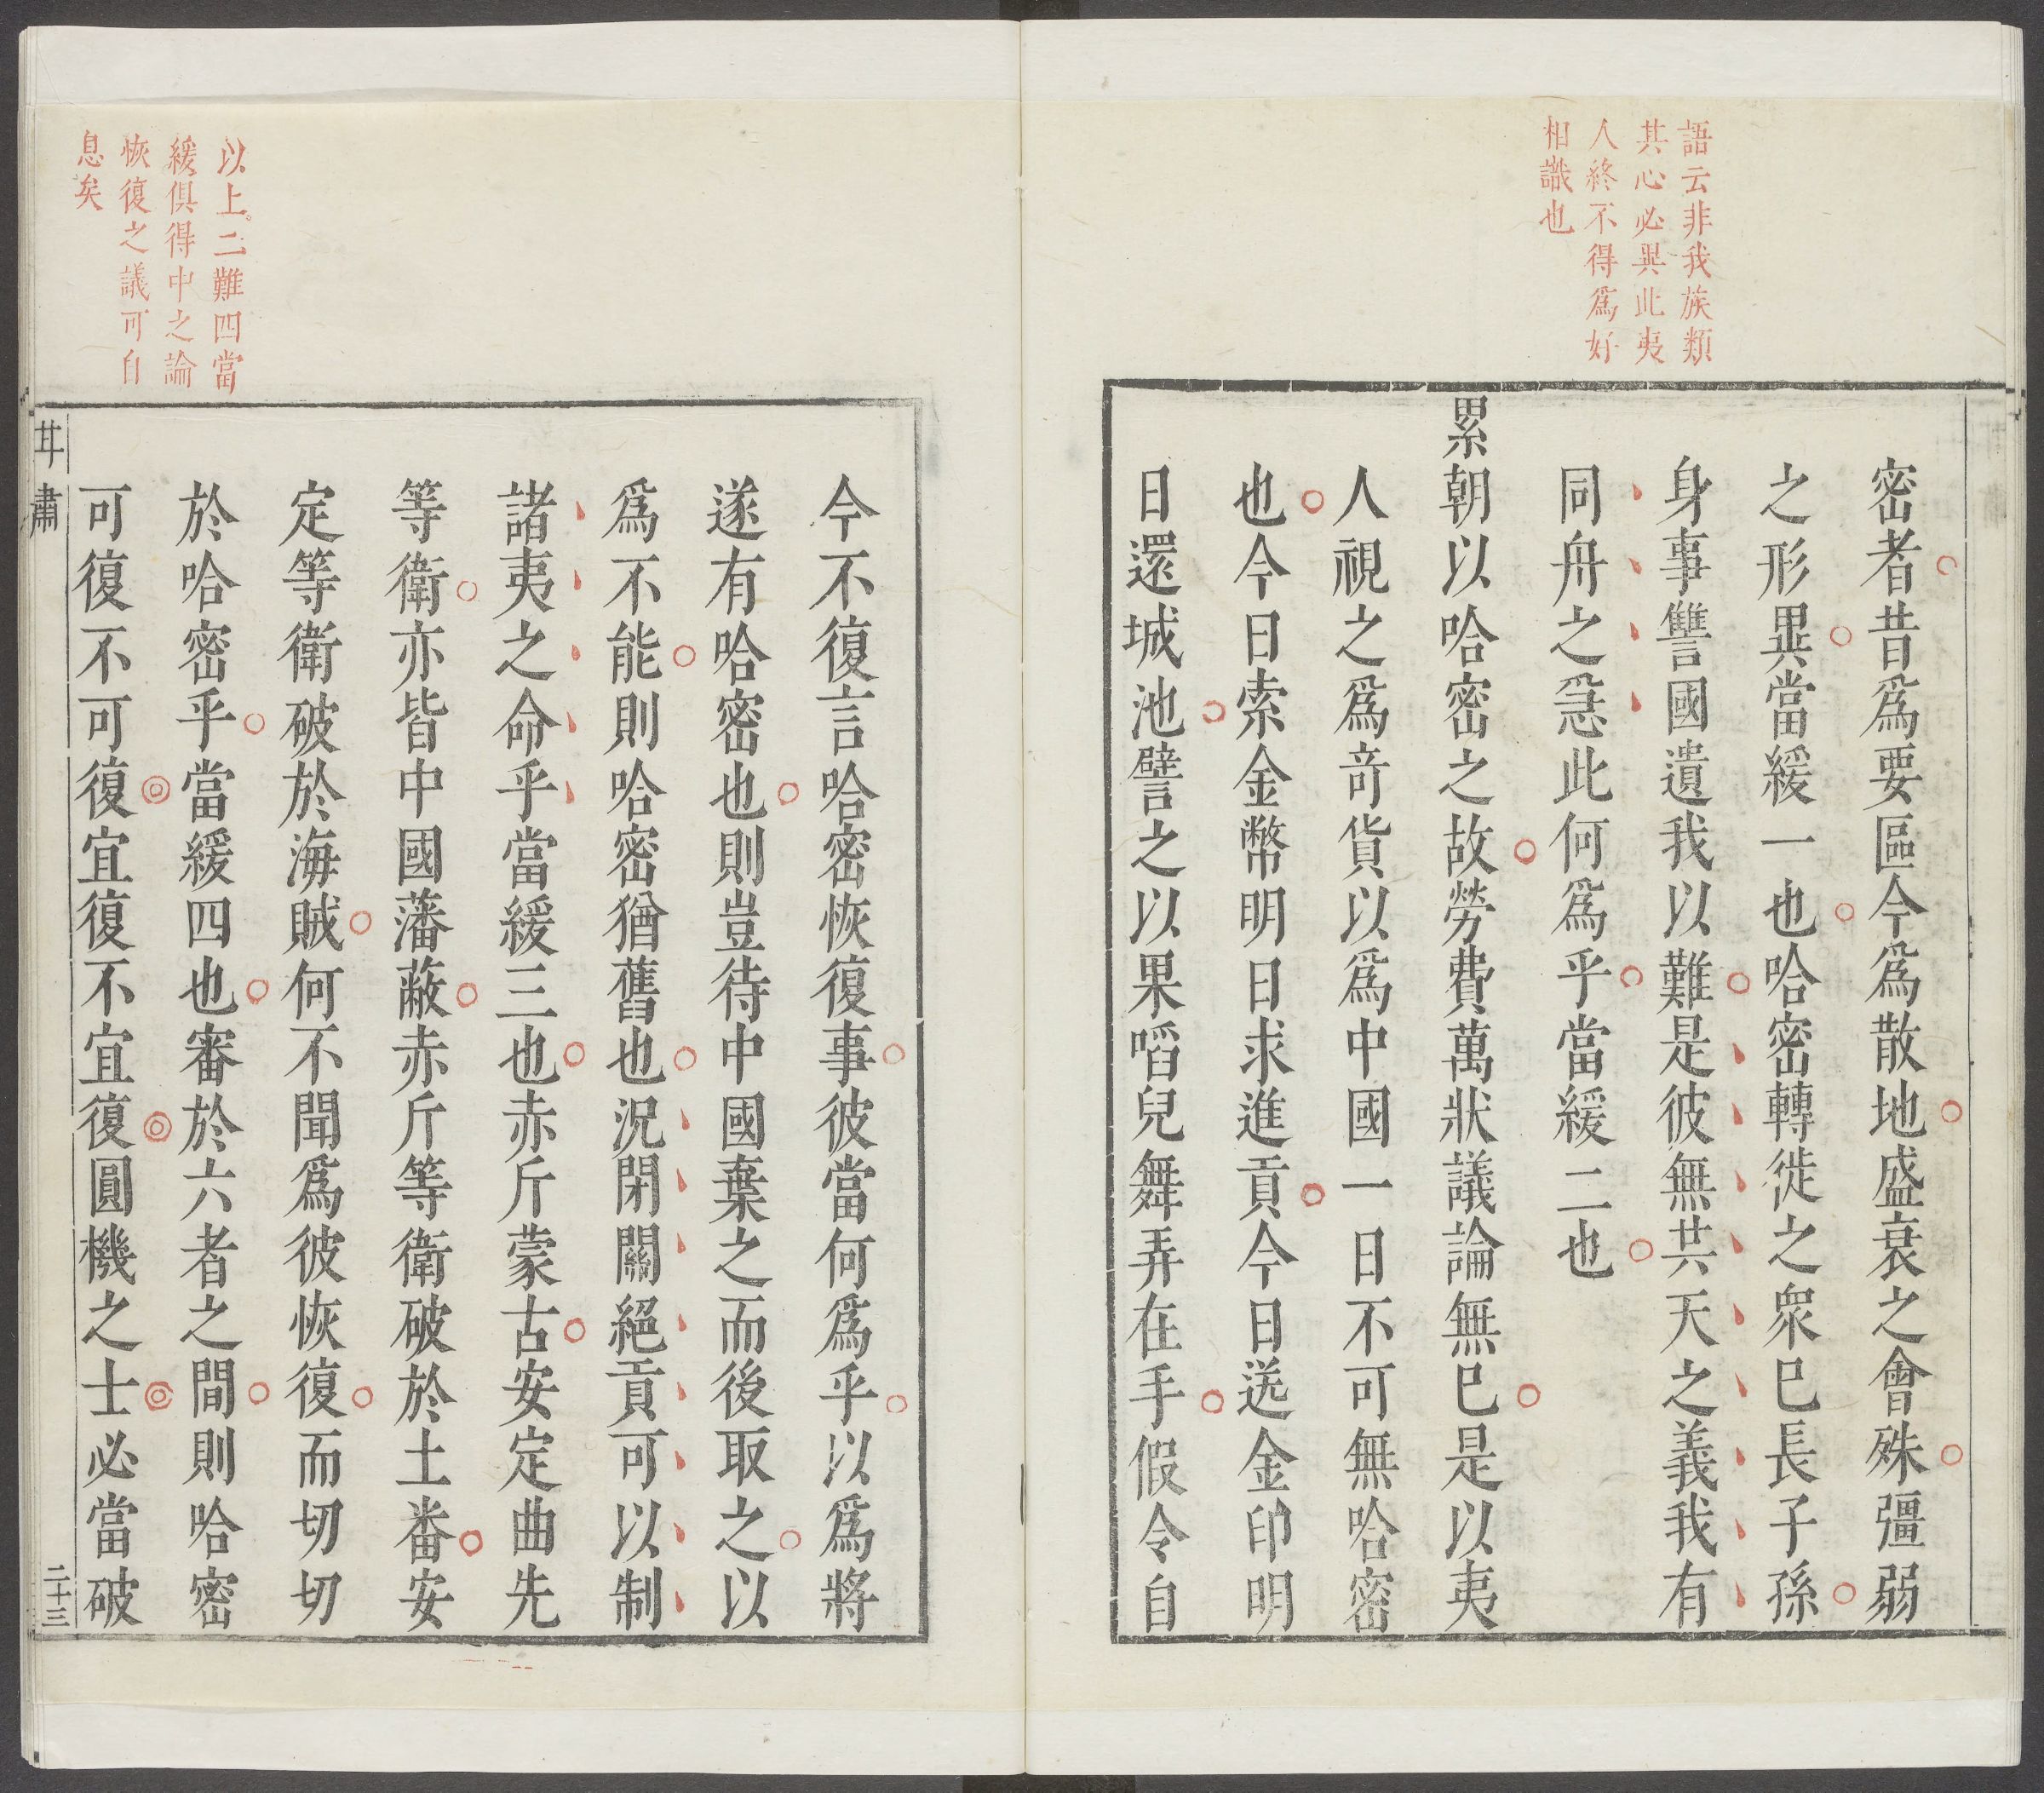 語云非我族類
其心必異此夷
人終不得爲好
相識也
密者昔爲要區今爲散地盛衰之會殊彊弱
之形異當緩一也哈密轉徙之衆巳長子孫
身事讐國遺我以難是彼無共天之義我有
同舟之急此何爲乎當緩二也
累朝以哈密之故勞費萬狀議論無巳是以夷
人視之爲竒貨以爲中國一日不可無哈密
也今日索金幣明日求進貢今日送金印明
日還城池譬之以果啗兒舞弄在手假令自
以上二難四當
緩俱得中之論
恢復之議可自
息矣
今不復言哈密恢復事彼當何爲乎以爲將
遂有哈密也則豈待中國棄之而後取之以
爲不能則哈密猶舊也況閉關絕貢可以制
諸夷之命乎當緩三也赤斤蒙古安定曲先
等衛亦皆中國藩蔽赤斤等衛破於土番安
定等衛破於海賊何不聞爲彼恢復而切切
於哈密乎當緩四也審於六者之間則哈密
可復不可復宜復不宜復圓機之士必當破
二十三